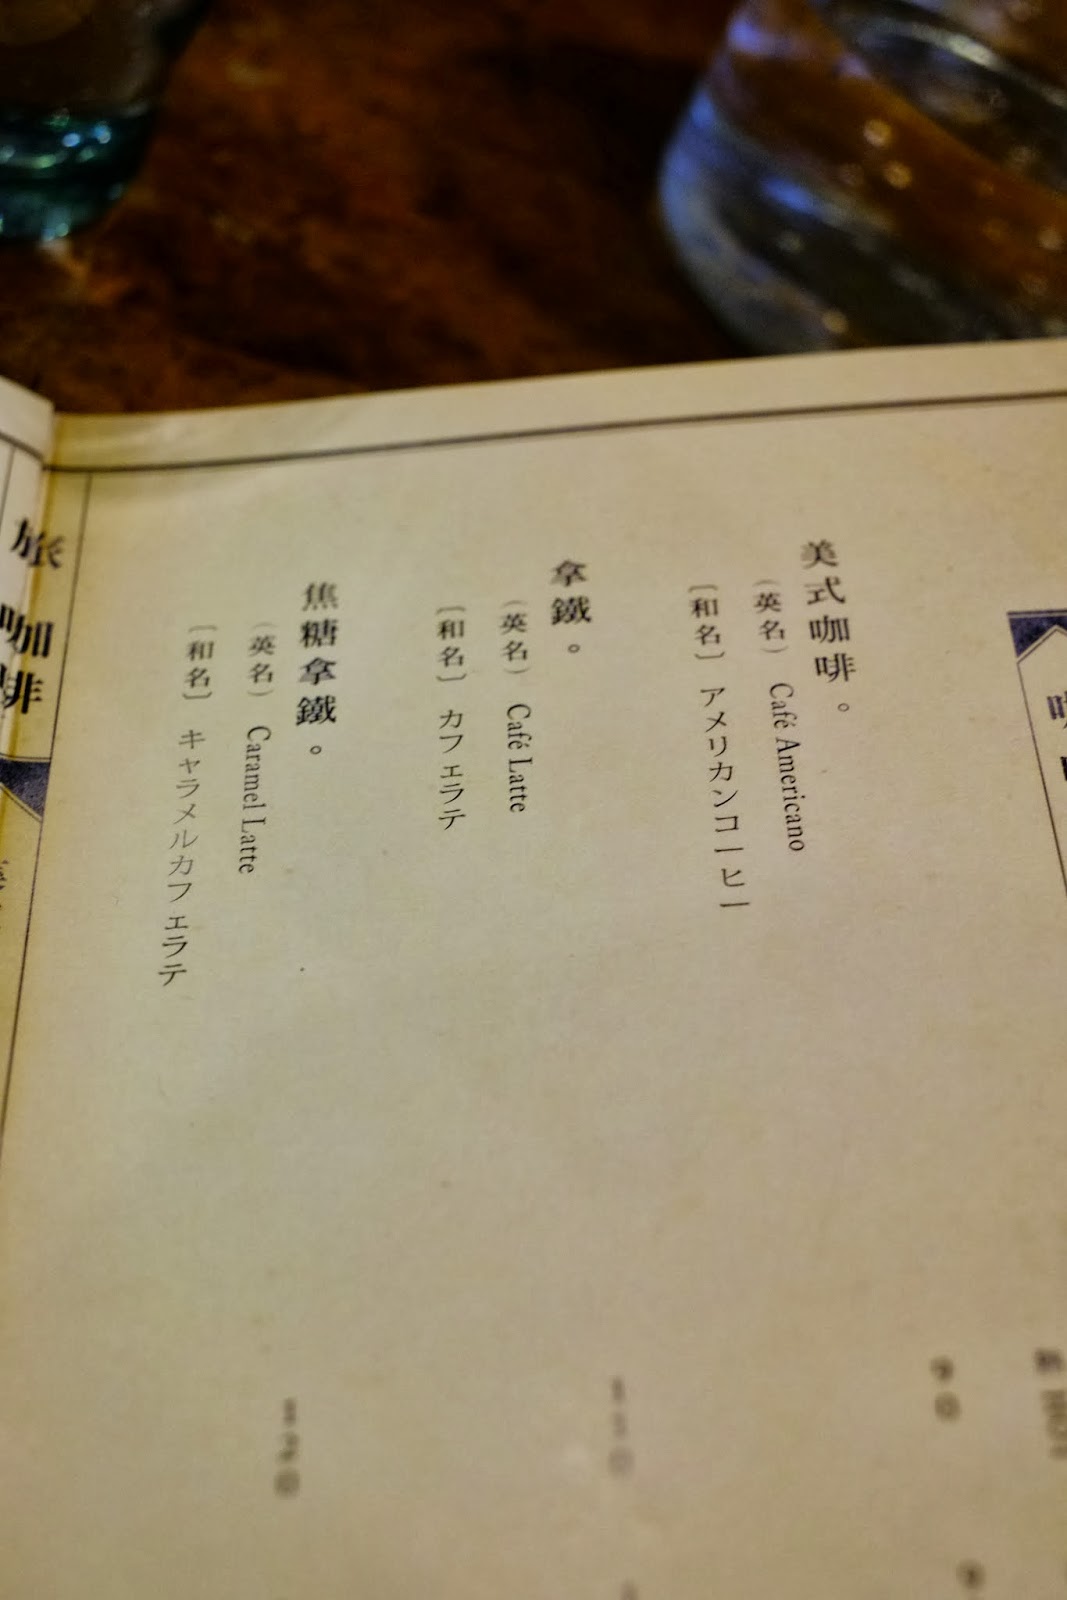 美式咖啡。
（英名） Café Americano
〔和名〕 アメリカンコーヒー
拿鐵。
（英名） Café Latte
〔和名〕 カフェラテ
焦糖拿鐵。
（英名） Caramel Latte
〔和名〕 キャラメルカフェラテ
旅咖啡